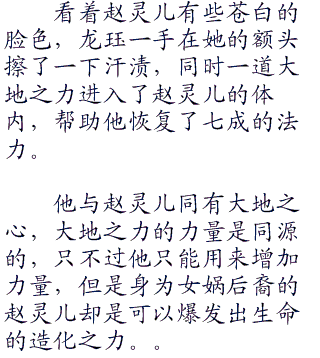 看着赵灵儿有些苍白的
脸色，龙珏一手在她的额头
擦了一下汗渍，同时一道大
地之力进入了赵灵儿的体
内，帮助他恢复了七成的法
力。
他与赵灵儿同有大地之
心，大地之力的力量是同源
的，只不过他只能用来增加
力量，但是身为女娲后裔的
赵灵儿却是可以爆发出生命
的造化之力。。